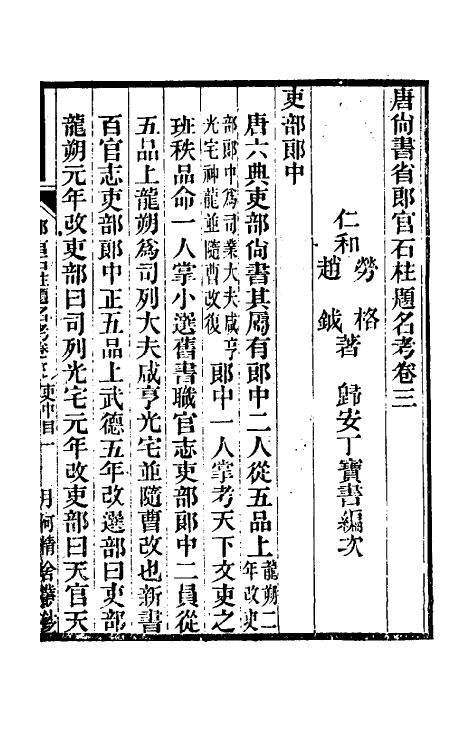 唐尚書省郎官石柱題名考卷三
仁和 勞格 趙鉞 著 歸安丁寶書編次
吏部郎中
唐六典吏部尚書其屬有郎中二人從五品上龍朔二年改吏
部郎中為司業大夫咸亨光宅神龍並隨曹改復郎中一人掌考天下文吏之
班秩品命一人掌小選舊書職官志吏部郎中二員從
五品上龍朔爲司列大夫咸亨光宅並隨曹改也新書
百官志吏部郎中正五品上武德五年改選部曰吏部
龍朔元年改吏部曰司列光宅元年改吏部曰天官天
郎官石柱題名考卷三 吏中目 一 月河精舍叢鈔